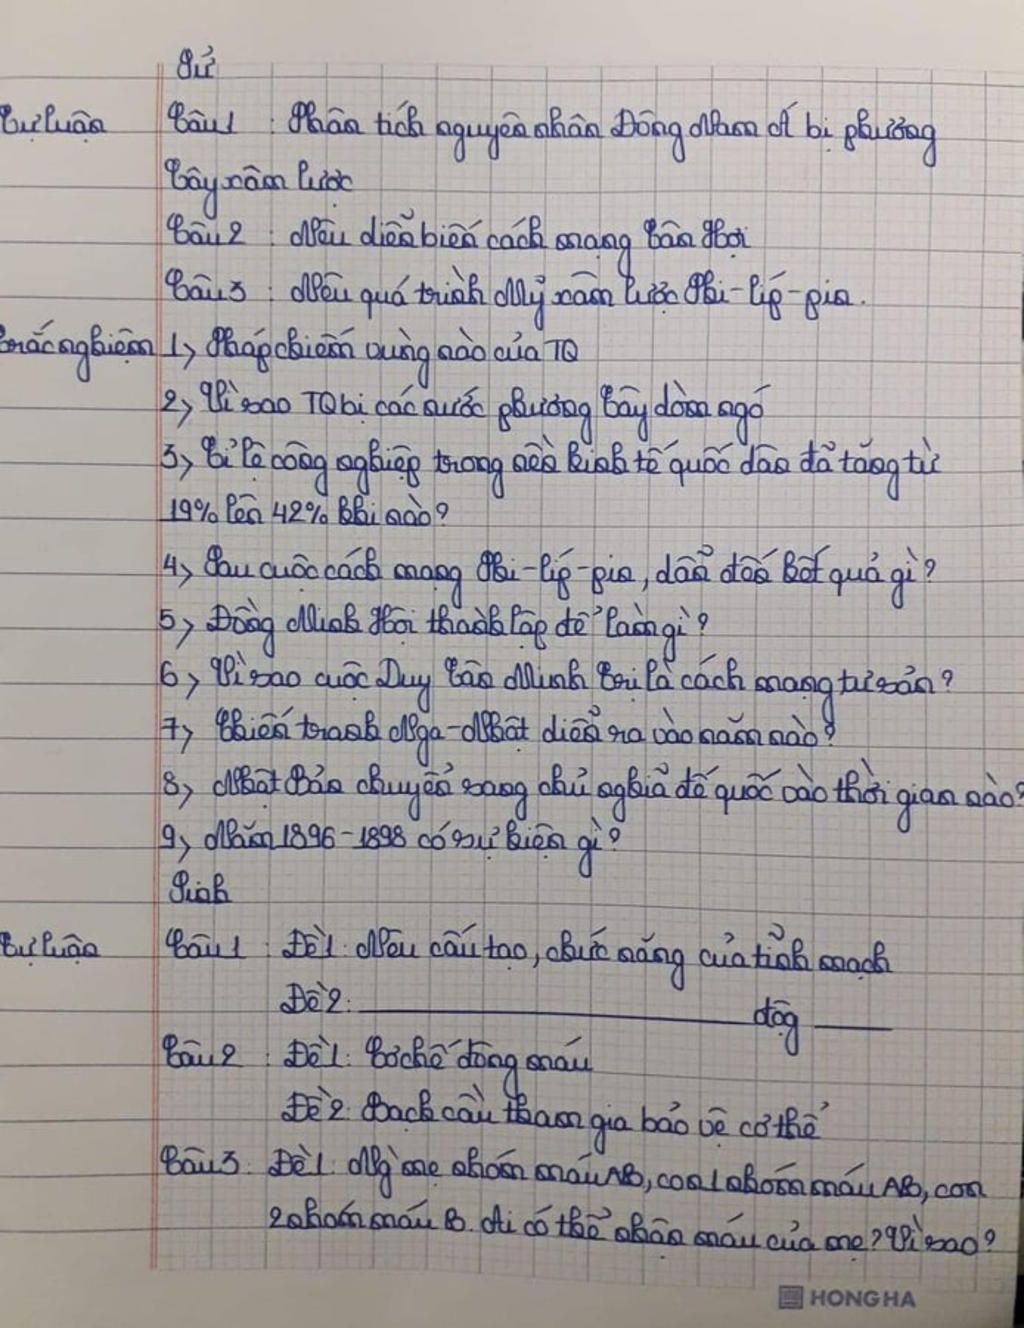 Sử
Tự luận Câu 1 : Phân tích nguyên nhân Đông Nam Á bị phương
Tây xâm lược
Câu 2 : Nêu diễn biến cách mạng Tân Hợi
Câu 3 : Nêu quá trình Mỹ xâm lược Phi-líp-pin.
Trắc nghiệm 1, Pháp chiếm vùng nào của TQ
2, Vì sao TQ bị các nước phương Tây dòm ngó
3, Tỉ lệ công nghiệp trong nền kinh tế quốc dân đã tăng từ
19% lên 42% khi nào?
4, Sau cuộc cách mạng Phi-líp-pin, dẫn đến kết quả gì?
5, Đồng Minh Hội thành lập để làm gì?
6, Vì sao cuộc Duy Tân Minh Trị là cách mạng tư sản?
7, Chiến tranh Nga-Nhật diễn ra vào năm nào?
8, Nhật Bản chuyển sang chủ nghĩa đế quốc vào thời gian nào?
9, Năm 1896-1898 có sự kiện gì?
Sinh
Tự luận Câu 1 : Đề 1: Nêu cấu tạo, chức năng của tĩnh mạch
Đề 2: động
Câu 2 : Đề 1: Cơ chế đông máu
Đề 2: Bạch cầu tham gia bảo vệ cơ thể
Câu 3 : Đề 1: Ng` mẹ nhóm máu AB, con 1 nhóm máu AB, con
2 nhóm máu B. Ai có thể nhận máu của mẹ? Vì sao?
HONG HA